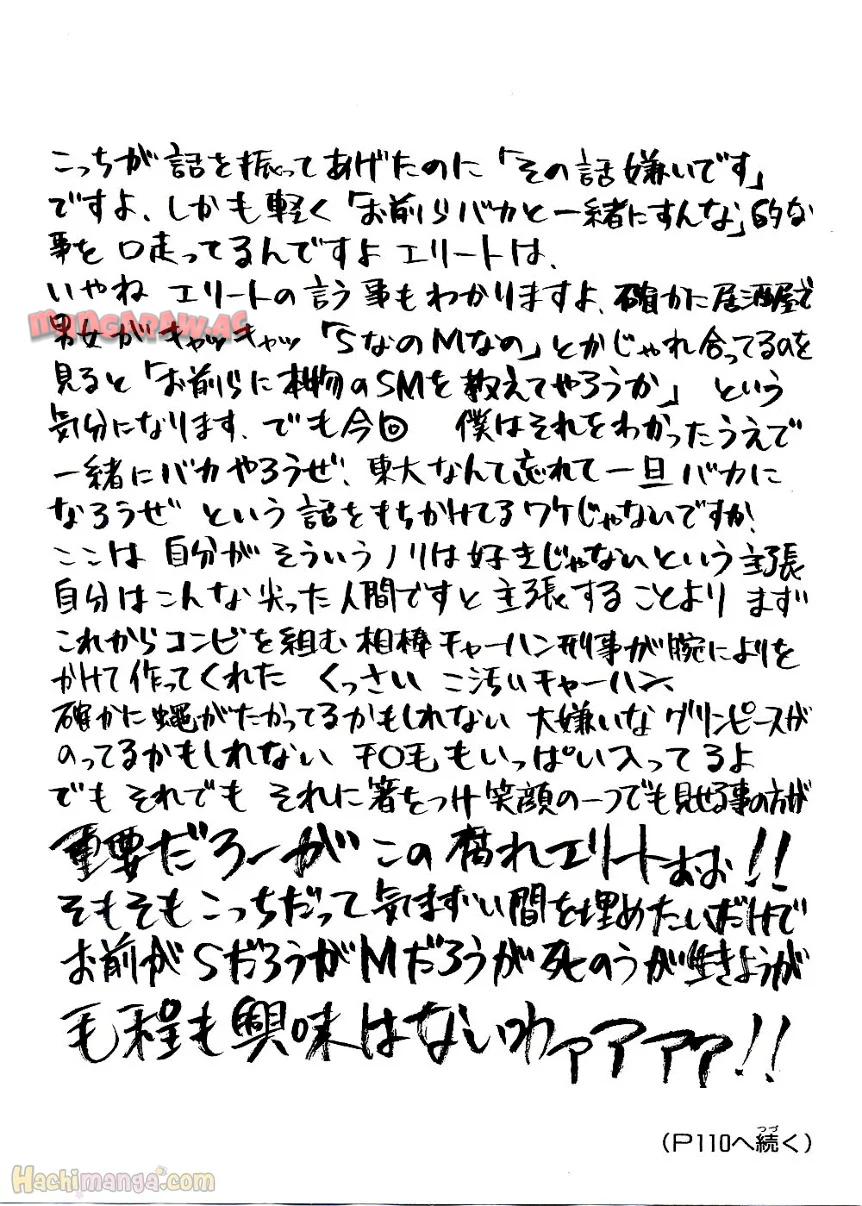 こっちが話を振ってあげたのに「その話嫌いです」
ですよ、しかも軽く「お前らバカと一緒にすんな」的な
事を口走ってるんですよエリートは、
いやね エリートの言う事もわかりますよ、確かに居酒屋で
MANGARAW.AC
男女がキャッキャッ「SなのMなの」とかじゃれ合ってるのを
見ると「お前らに本物のSMを教えてやろうか」という
気分になります、でも今回 僕はそれをわかったうえで
一緒にバカやろうぜ、東大なんて忘れて一旦バカに
なろうぜ という話をもちかけてるワケじゃないですか、
ここは自分がそういうノリは好きじゃないという主張
自分はこんな尖った人間ですと主張することより まず
これからコンビを組む相棒チャーハン刑事が腕によりを
かけて作ってくれた くっさい こ汚いチャーハン、
確かに蝿がたかってるかもしれない 大嫌いなグリンピースが
のってるかもしれない チ○毛もいっぱい入ってるよ
でも それでも それに箸をつけ笑顔の一つでも見せる事の方が
重要だろーがこの腐れエリートぉお!!
そもそもこっちだって気まずい間を埋めたいだけで
お前がSだろうがMだろうが死のうが生きようが
毛程も興味はないわァアアア!!
(P110へ続く)
つづ
Hachimanga.com